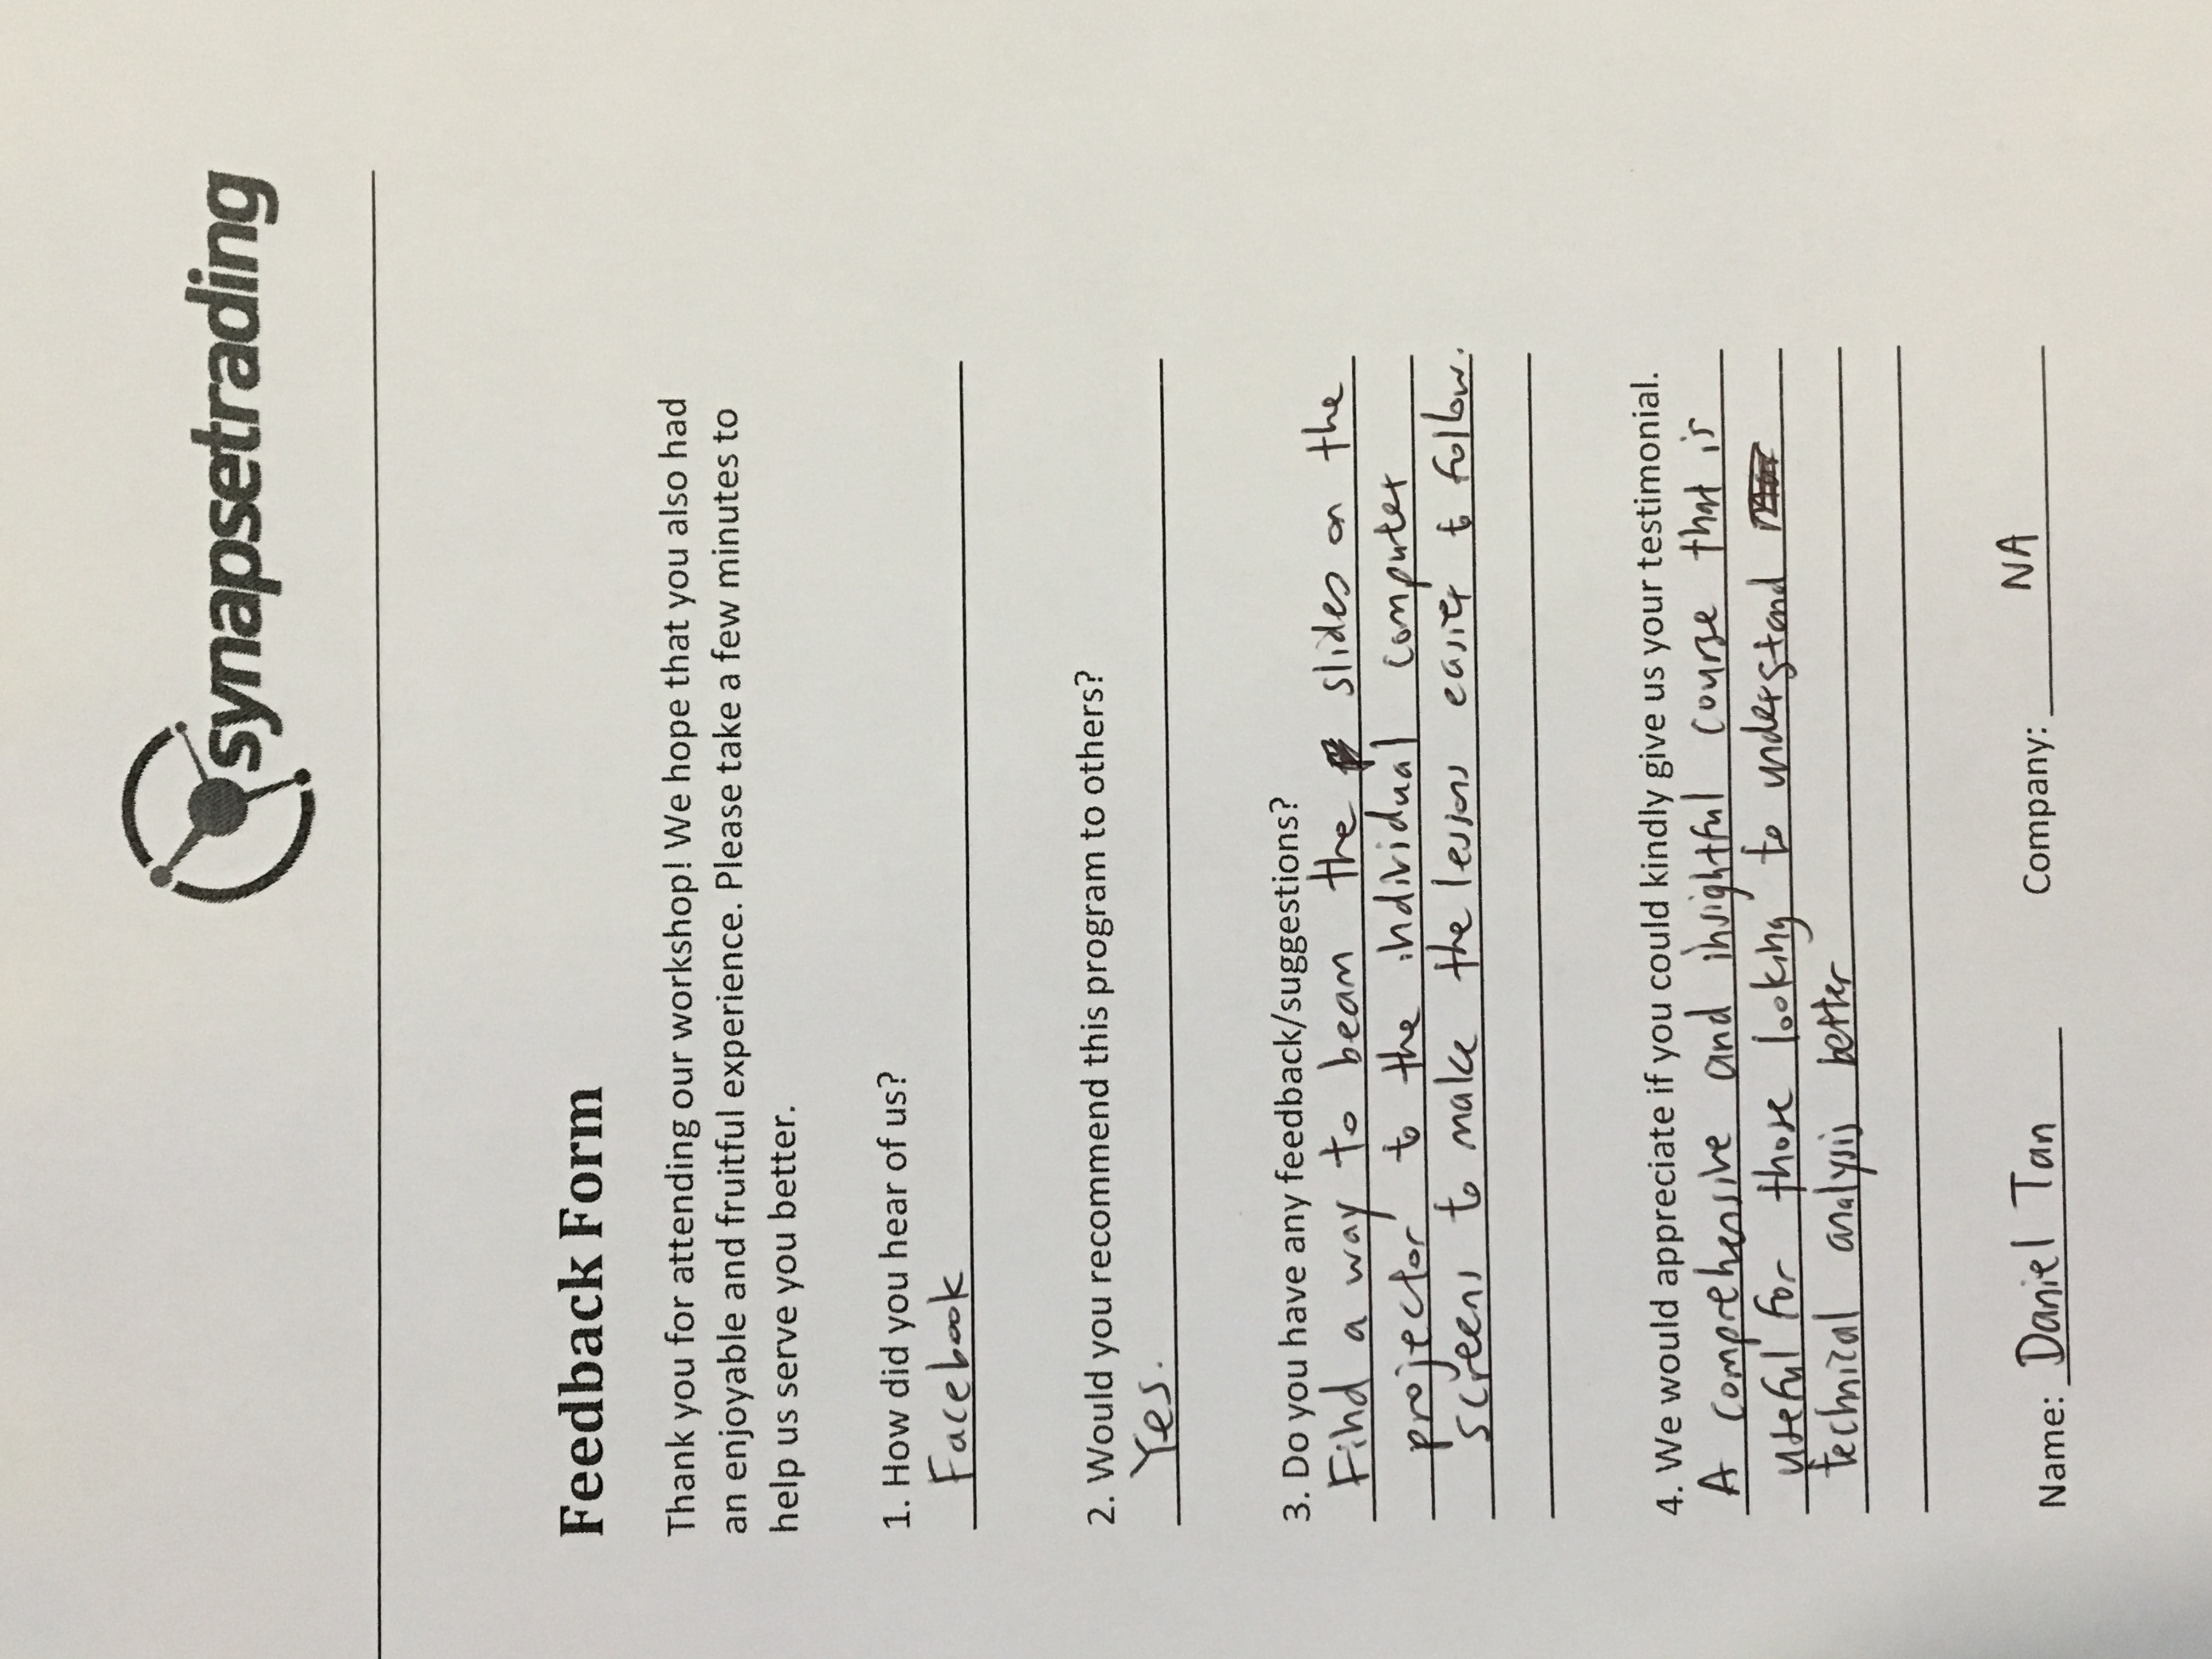 synapsetrading
Feedback Form
Thank you for attending our workshop! We hope that you also had
an enjoyable and fruitful experience. Please take a few minutes to
help us serve you better.
1. How did you hear of us?
Facebook
2. Would you recommend this program to others?
Yes.
3. Do you have any feedback/suggestions?
Find a way to beam the slides on the
projector to the individual computer
screens to make the lessons easier to follow.
4. We would appreciate if you could kindly give us your testimonial.
A comprehensive and insightful course that is
useful for those looking to understand
technical analysis better
Name: Daniel Tan Company: NA